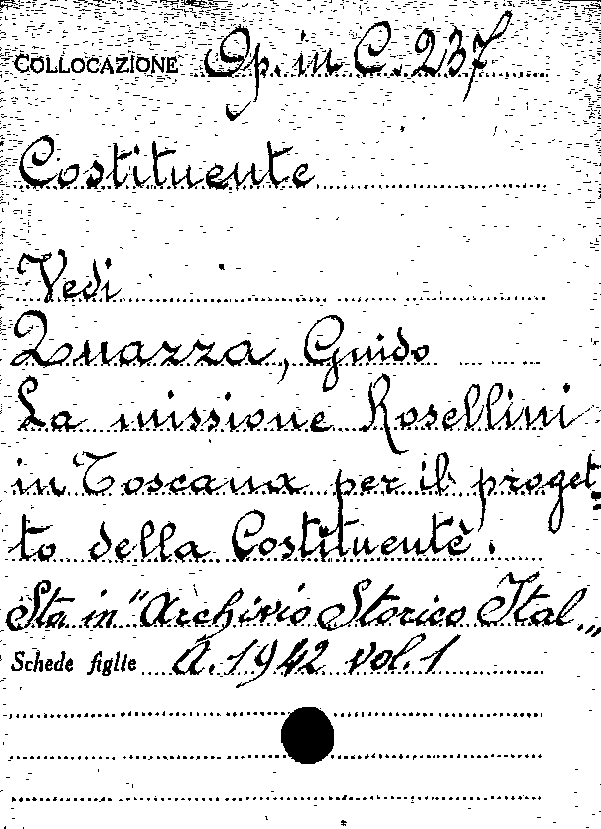 COLLOCAZIONE Op. in C. 237
Costituente
Vedi
Quazza, Guido
La missione Rosellini
in Toscana per il proget-
to della Costituente.
Sta in "Archivio Storico Ital.,,
Schede figlie A. 1942 vol. 1